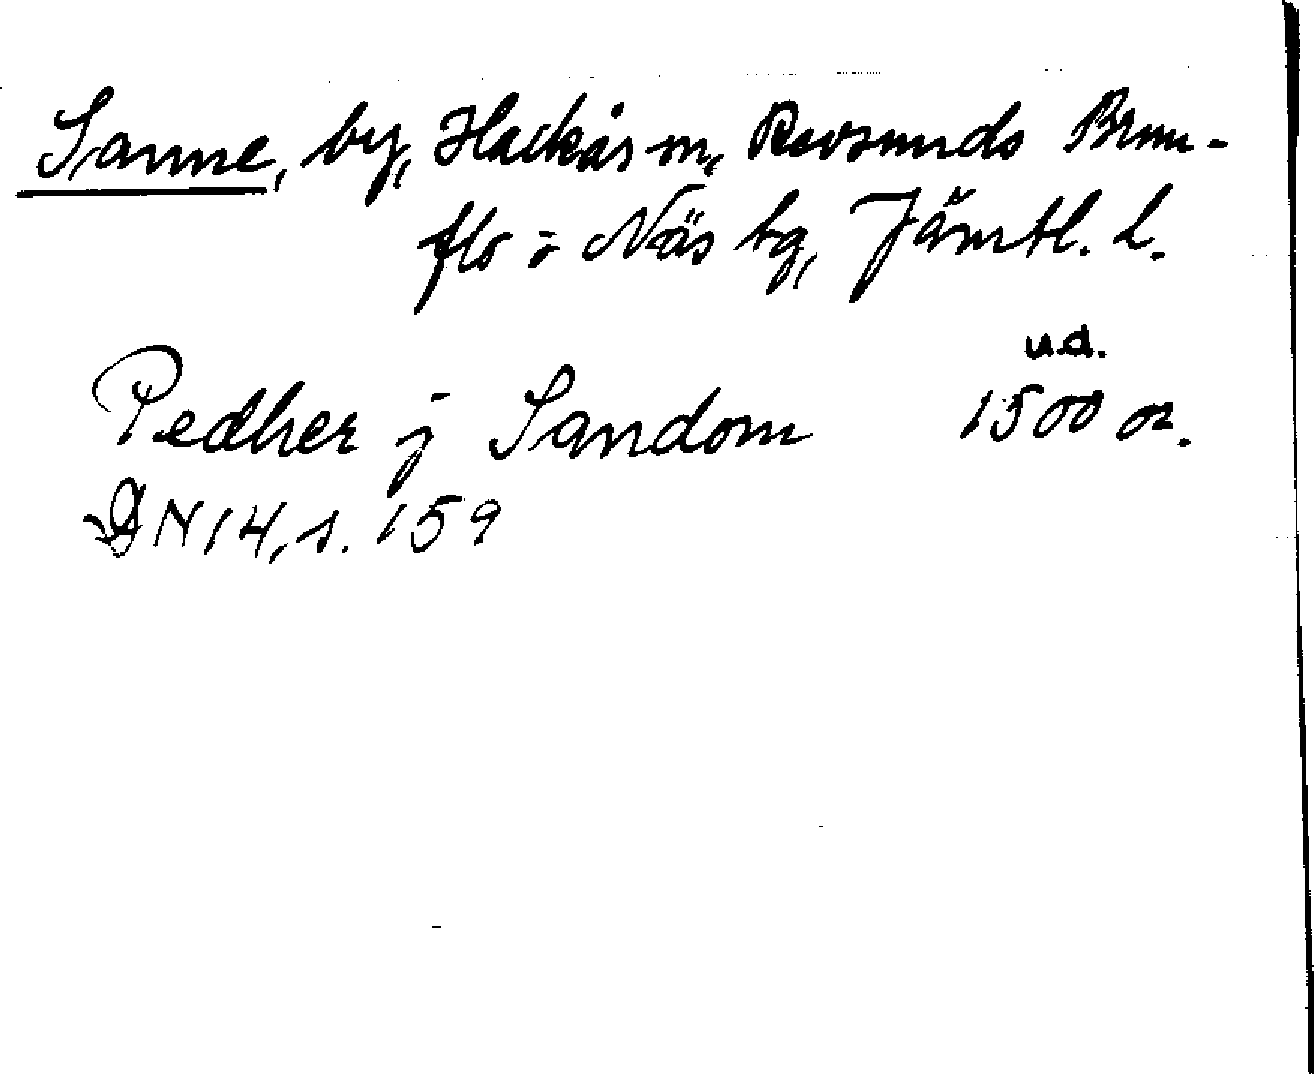 Sanne, by, Hackås sn, Revsunds Brun-
flo o Näs tg, Jämtl. L.
u.d.
Pedher j Sandom 1500 or.
DN 14, s. 159